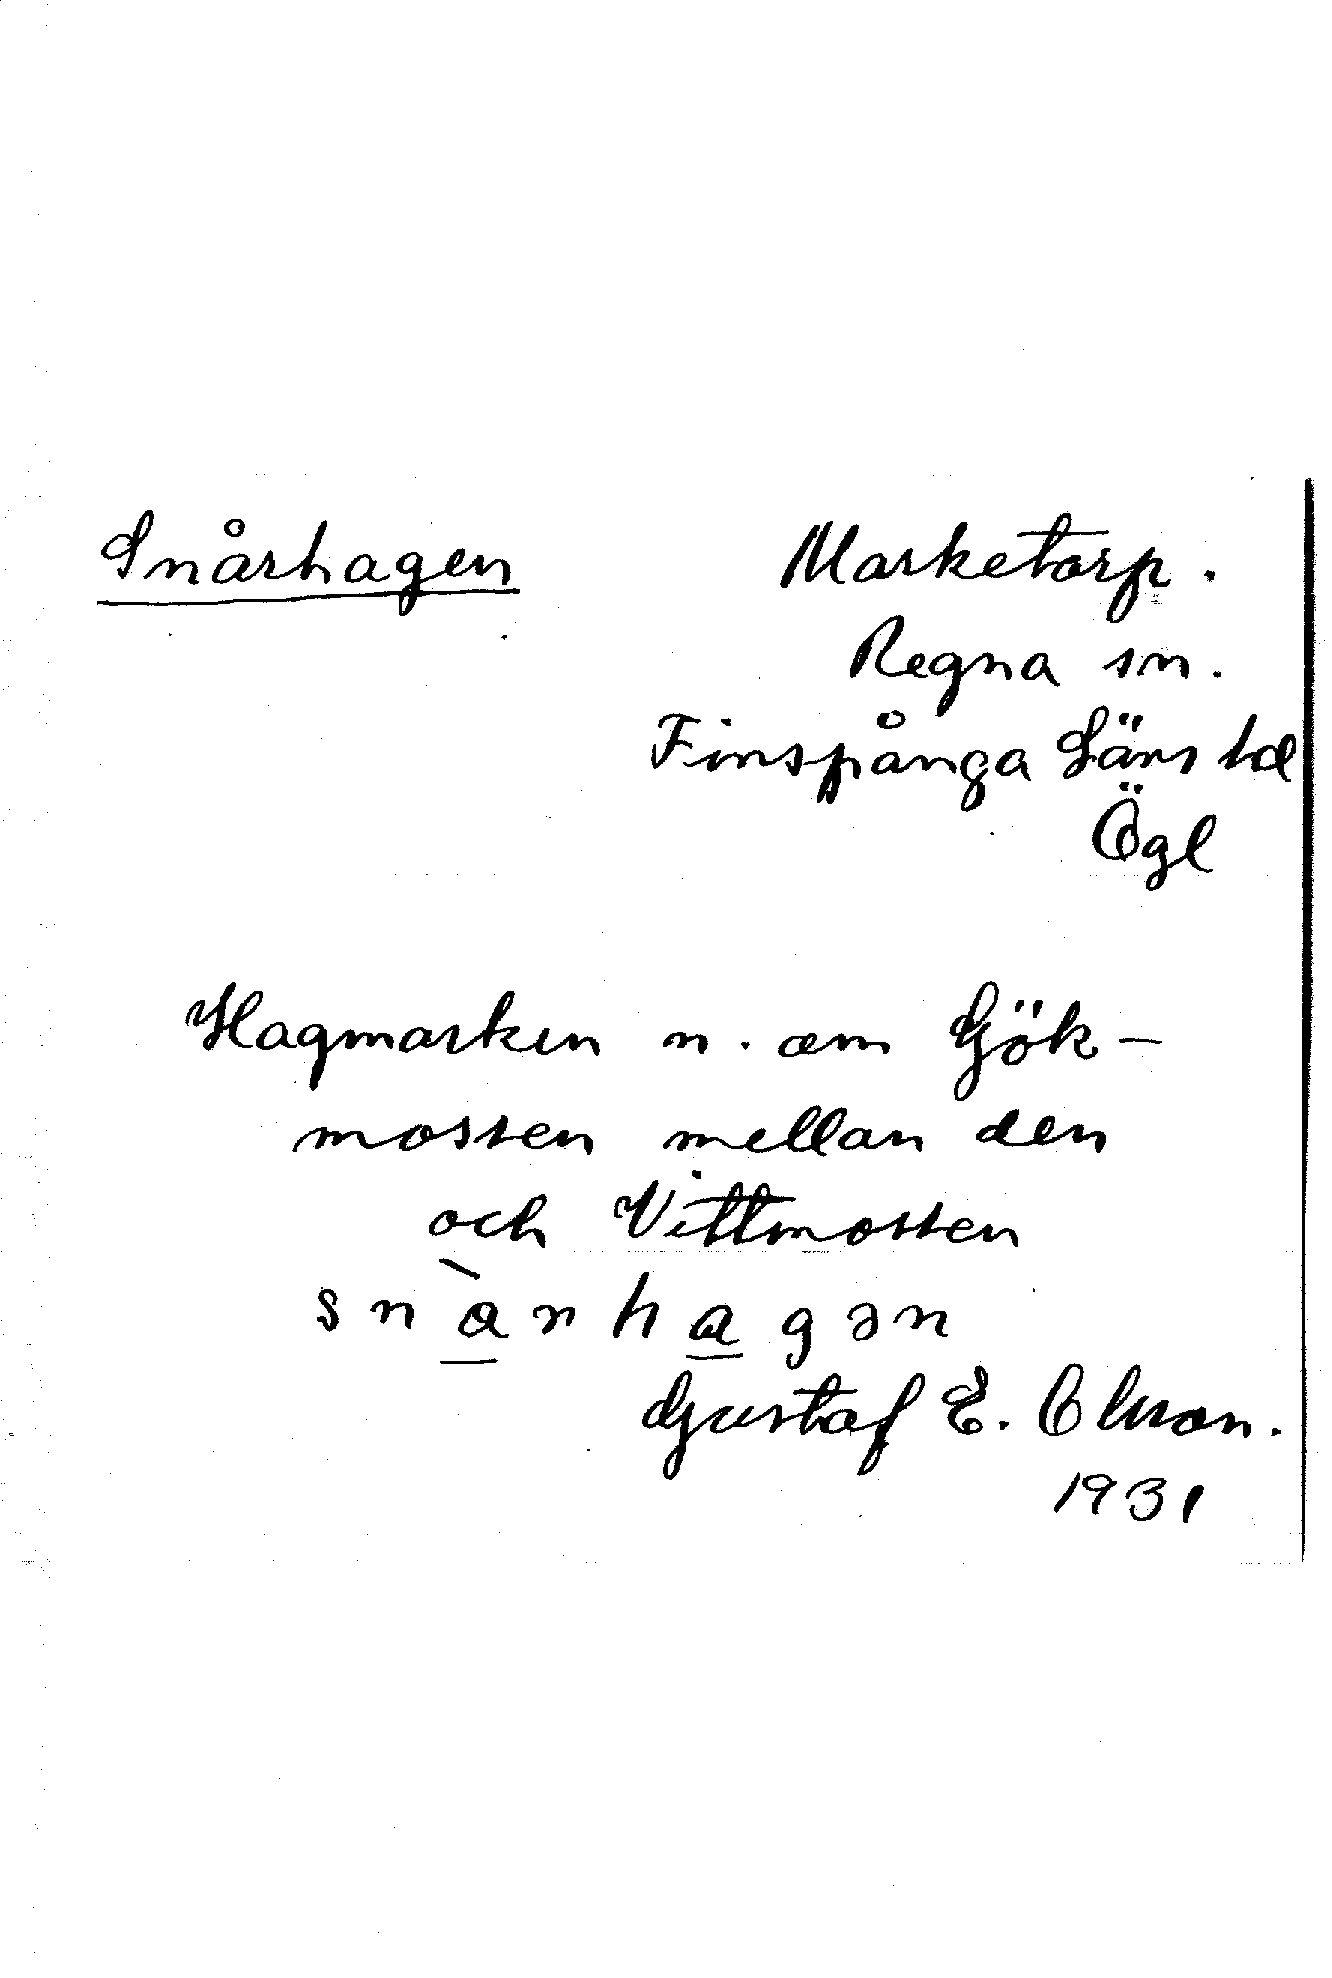 Snårhagen
Marketorp.
Regna sn.
Finspånga Läns hd
Ögl
Hagmarken n. om Gök-
mossen mellan den
och Vittmossen
snàrhagən
Gustaf E. Olsson.
1931